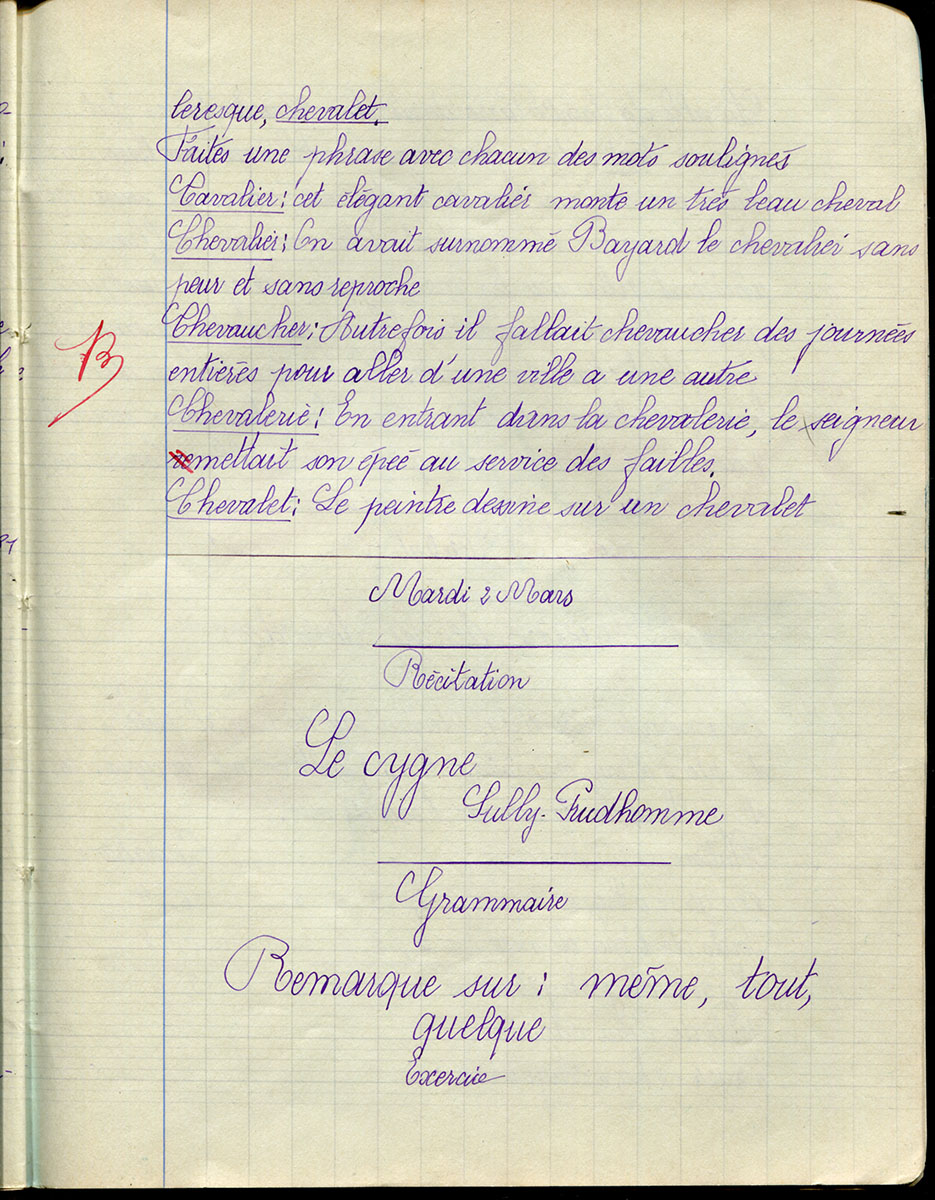 leresque, chevalet.
Faites une phrase avec chacun des mots soulignés
Cavalier: cet élégant cavalier monte un très beau cheval
Chevalier: On avait surnommé Bayard le chevalier sans
peur et sans reproche
Chevaucher: Autrefois il fallait chevaucher des journées
entières pour aller d'une ville a une autre
Chevalerie: En entrant dans la chevalerie, le seigneur
remettait son épeé au service des faibles.
Chevalet: Le peintre dessine sur un chevalet
B
Mardi 2 Mars
Récitation
Le cygne
Sully-Prudhomme
Grammaire
Remarque sur: même, tout,
quelque
Exercice